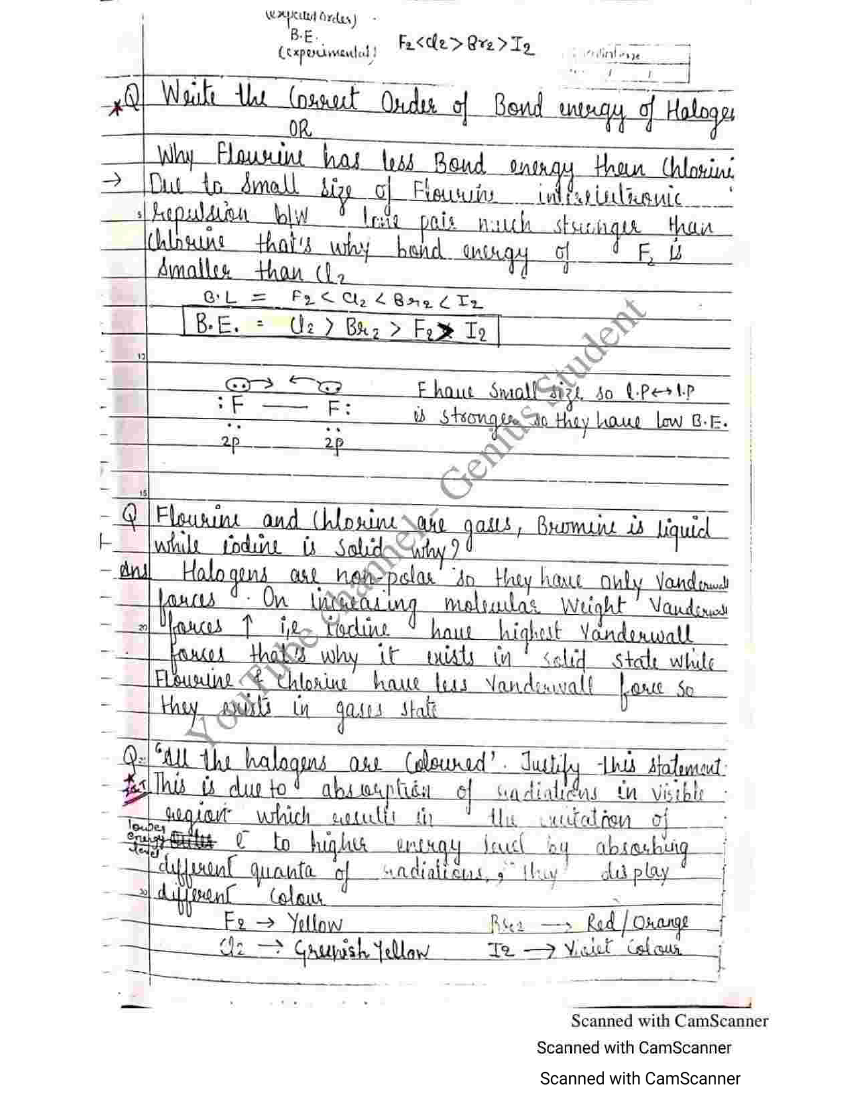 (expected order)
B.E.
(experimental)
F2<Cl2>Br2>I2
Q Write the Correct Order of Bond energy of Haloge
OR
Why Flourine has less Bond energy than Chlorine
→ Due to small size of Flourine interelectronic
5 repulsion b/w lone pair much stronger than
Chlorine that's why bond energy of F2 is
smaller than Cl2
B.L = F2 < Cl2 < Br2 < I2
B.E. = Cl2 > Br2 > F2 > I2
:F — F:
2p 2p
F have small size so l.p↔l.p
is stronger so they have low B.E.
15
Q Flourine and Chlorine are gases, Bromine is liquid
while iodine is solid why?
Ans Halogens are non-polar so they have only Vanderwall
forces. On increasing molecular weight Vanderwall
20 forces ↑ i,e iodine have highest Vanderwall
forces that's why it exists in solid state while
Flourine & Chlorine have less Vanderwall force so
they exists in gases state
Q- "All the halogens are Coloured". Justify this statement.
This is due to absorption of radiations in visible
region which results in the excitation of
lower energy level e- to higher energy level by absorbing
different quanta of radiations, they display
different colour
F2 → Yellow Br2 → Red/Orange
Cl2 → Greenish Yellow I2 → Violet Colour
YouTube Channel - Genius Student
Scanned with CamScanner
Scanned with CamScanner
Scanned with CamScanner